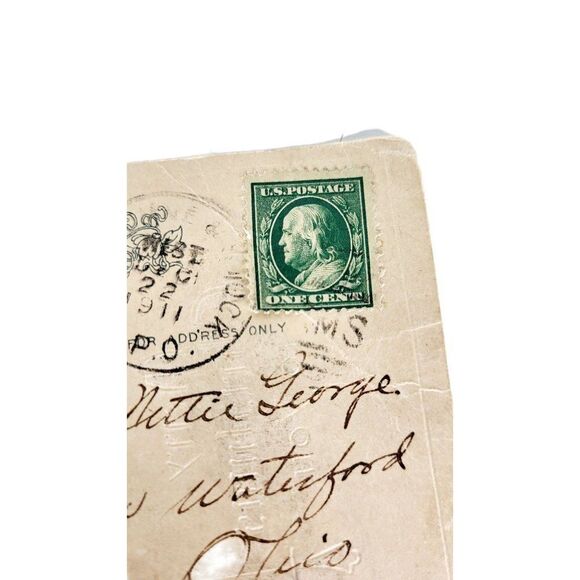 U.S. POSTAGE
ONE CENT
22
1911
P.O.
FOR ADDRESS ONLY
MS
Nettie George.
Waterford
Ohio